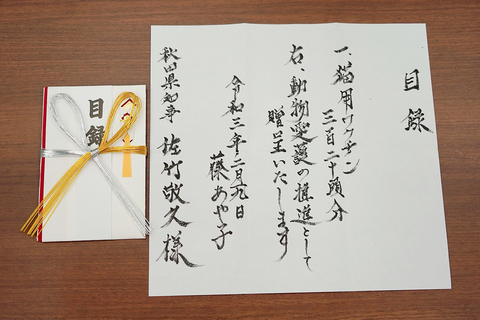 目録
一、猫用ワクチン
三百二十頭分
右、動物愛護の推進として
贈呈いたします
令和三年二月九日
藤あや子
秋田県知事 佐竹敬久様
目録